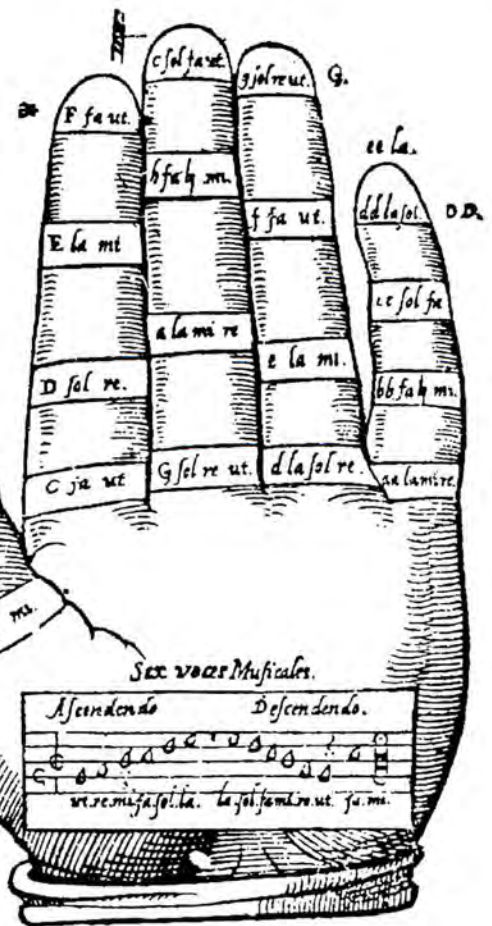 F fa ut.
E la mi
D sol re.
C fa ut
c sol fa ut.
b fa ♮ mi.
a la mi re
G sol re ut.
g sol re ut.
G.
f fa ut.
e la mi.
d la sol re.
ee la.
dd la sol.
DD.
cc sol fa
bb fa ♮ mi.
aa la mi re.
mi.
Sex voces Musicales.
Ascendendo Descendendo.
C
ut.re.mi.fa.sol.la. la.sol.fa.mi.re.ut. fa.mi.